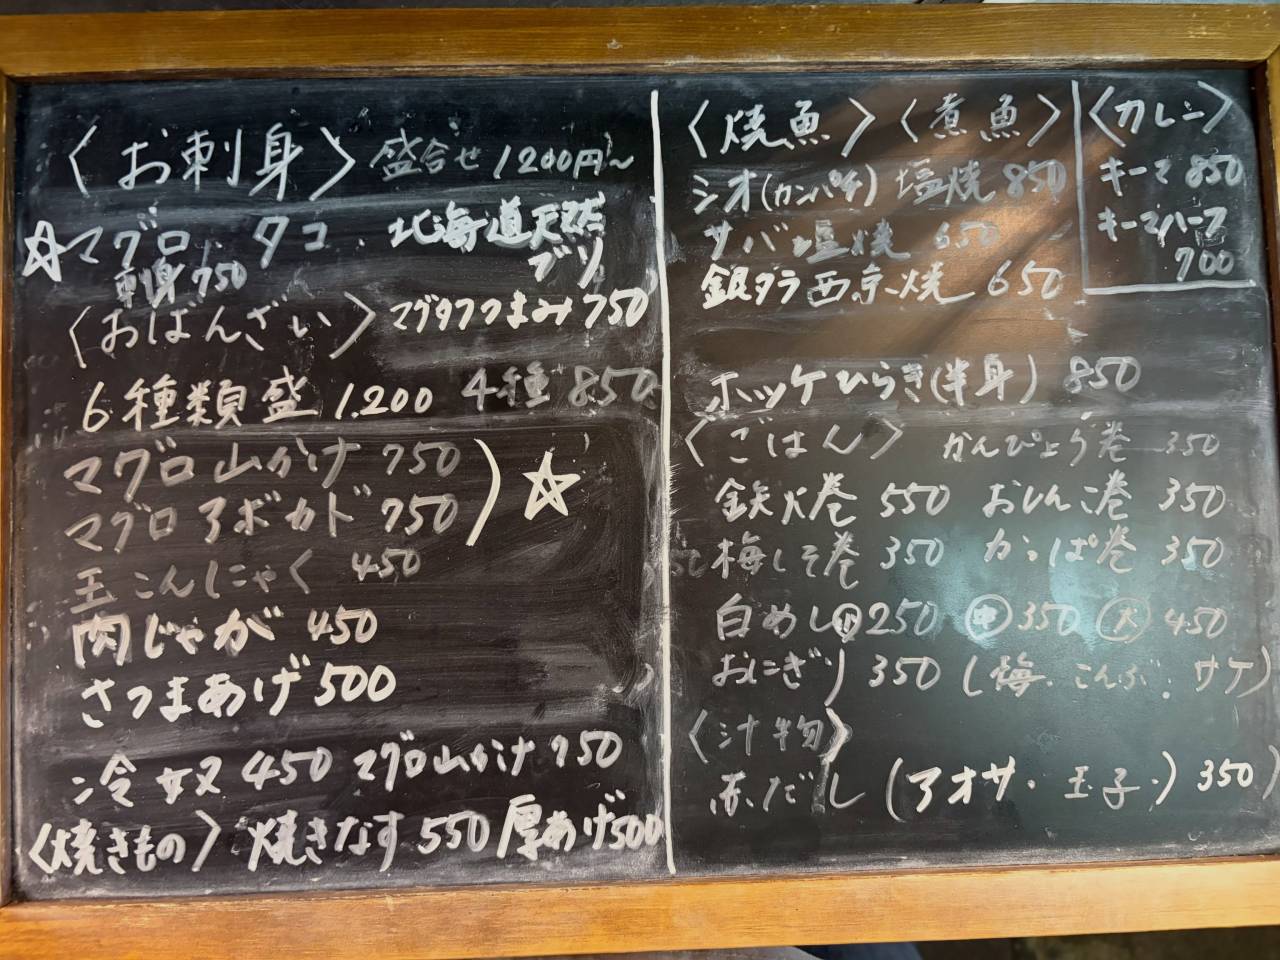 〈お刺身〉盛合せ 1200円〜
☆マグロ タコ 北海道天然
刺身 750 ブリ
〈おばんざい〉マグタクつまみ 750
6種類盛 1.200 4種 850
マグロ山かけ 750
マグロアボカド 750 ☆
玉こんにゃく 450
肉じゃが 450
さつまあげ 500
冷奴 450 マグロ山かけ 750
〈焼きもの〉焼きなす 550 厚あげ 500
〈焼魚〉〈煮魚〉
シオ(カンパチ)塩焼 850
サバ塩焼 650
銀ダラ西京焼 650
ホッケひらき(半身) 850
〈ごはん〉 かんぴょう巻 350
鉄火巻 550 おしんこ巻 350
梅しそ巻 350 かっぱ巻 350
白めし㊙小250 ㊥350 大450
おにぎり 350 (梅・こんぶ・サケ)
〈汁物〉
赤だし (アオサ・玉子・) 350
〈カレー〉
キーマ 850
キーマハーフ
700